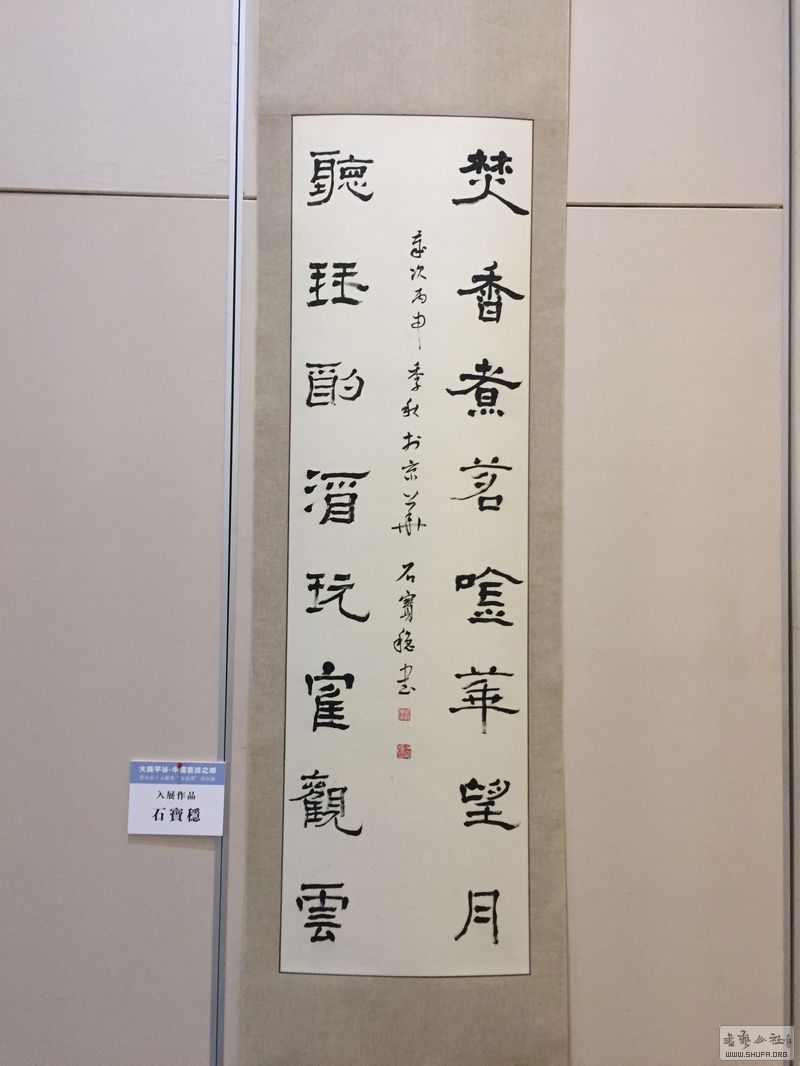 焚香煮茗唫華望月
聽珡酌酒玩寉觀雲
歲次丙申季秋於京華 石寶穩書
大美平谷·中國書法之鄉
入展作品
石寶穩
書藝公社
WWW.SHUFA.ORG